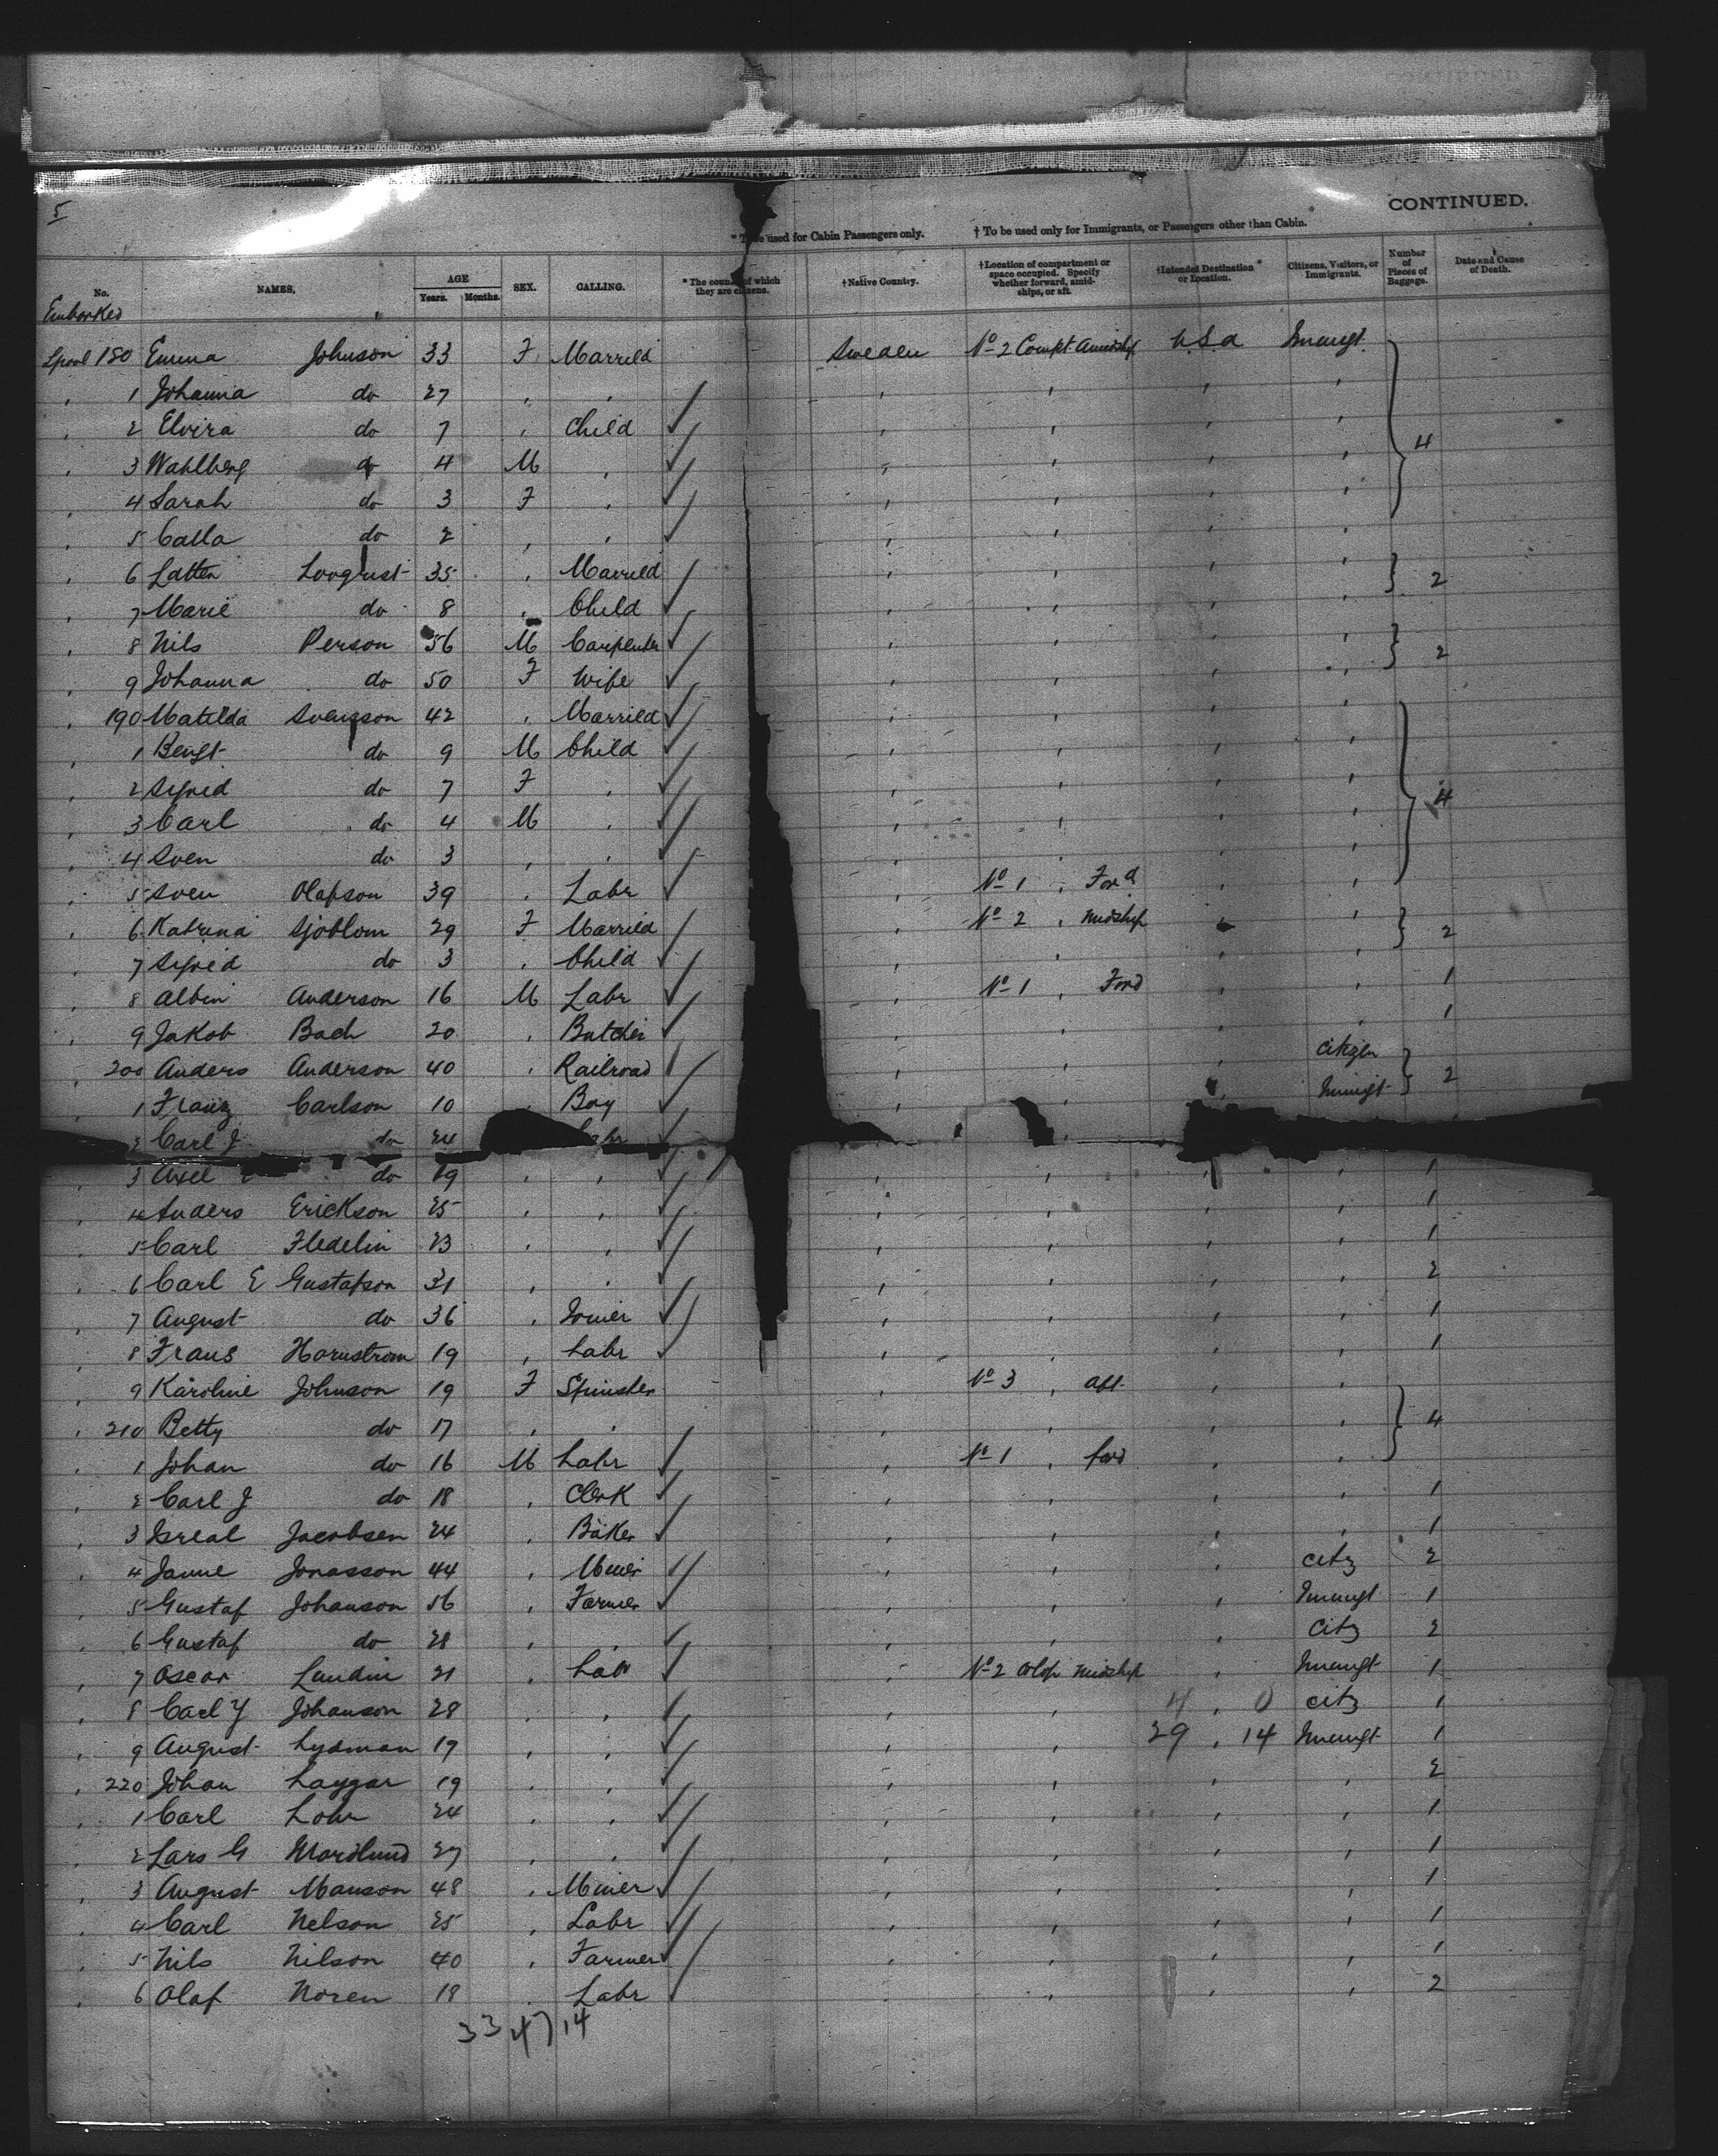 5
CONTINUED.
* To be used for Cabin Passengers only. † To be used only for Immigrants, or Passengers other than Cabin.
No. NAMES. AGE Years. Months. SEX. CALLING. * The country of which they are citizens. † Native Country. † Location of compartment or space occupied. Specify whether forward, amidships, or aft. † Intended Destination or Location. Citizens, Visitors, or Immigrants. Number of Pieces of Baggage. Date and Cause of Death.
Embarked
Lpool 180 Emma Johnson 33 F Married Sweden No 2 Compt Amidship U.S.A Immigt
1 Johanna do 27
2 Elvira do 7 Child 4
3 Wahlberg do 4 M
4 Sarah do 3 F
5 Calla do 2
6 Lotten Lovqrist 35 Married 2
7 Marie do 8 Child
8 Nils Person 56 M Carpenter 2
9 Johanna do 50 F Wife
190 Matilda Svensson 42 Married
1 Bengt do 9 M Child
2 Sigrid do 7 F 4
3 Carl do 4 M
4 Sven do 3
5 Sven Olafson 39 Labr No 1 Ford
6 Katrina Sjoblom 29 F Married No 2 midship 2
7 Sigrid do 3 Child
8 Albin Anderson 16 M Labr No 1 Ford 1
9 Jakob Bach 20 Butcher 1
200 Anders Anderson 40 Railroad Citizen 2
1 Franz Carlson 10 Boy Immigt
2 Carl J do 24 Labr
3 Axel do 19 1
4 Anders Erickson 25 1
5 Carl Fledelin 23 1
6 Carl E Gustafson 31 2
7 August do 36 Joiner 1
8 Frans Hornstrom 19 Labr 1
9 Karoline Johnson 19 F Spinster No 3 aft
210 Betty do 17 4
1 Johan do 16 M Labr No 1 ford
2 Carl J do 18 Clerk 1
3 Isreal Jacobsen 24 Baker 1
4 Janne Jonasson 44 Miner Citz 2
5 Gustaf Johanson 56 Farmer Immigt 1
6 Gustaf do 28 Citz 2
7 Oscar Lundin 21 Labr No 2 midship Immigt 1
8 Carl Y Johanson 28 4 0 Citz 1
9 August Lydman 19 29 14 Immigt 1
220 Johan Laggar 19 2
1 Carl Lohr 24 1
2 Lars G Mordlund 27 1
3 August Manson 48 Miner 1
4 Carl Nelson 25 Labr 1
5 Nils Nilson 40 Farmer 1
6 Olaf Noren 18 Labr 2
33 47 14